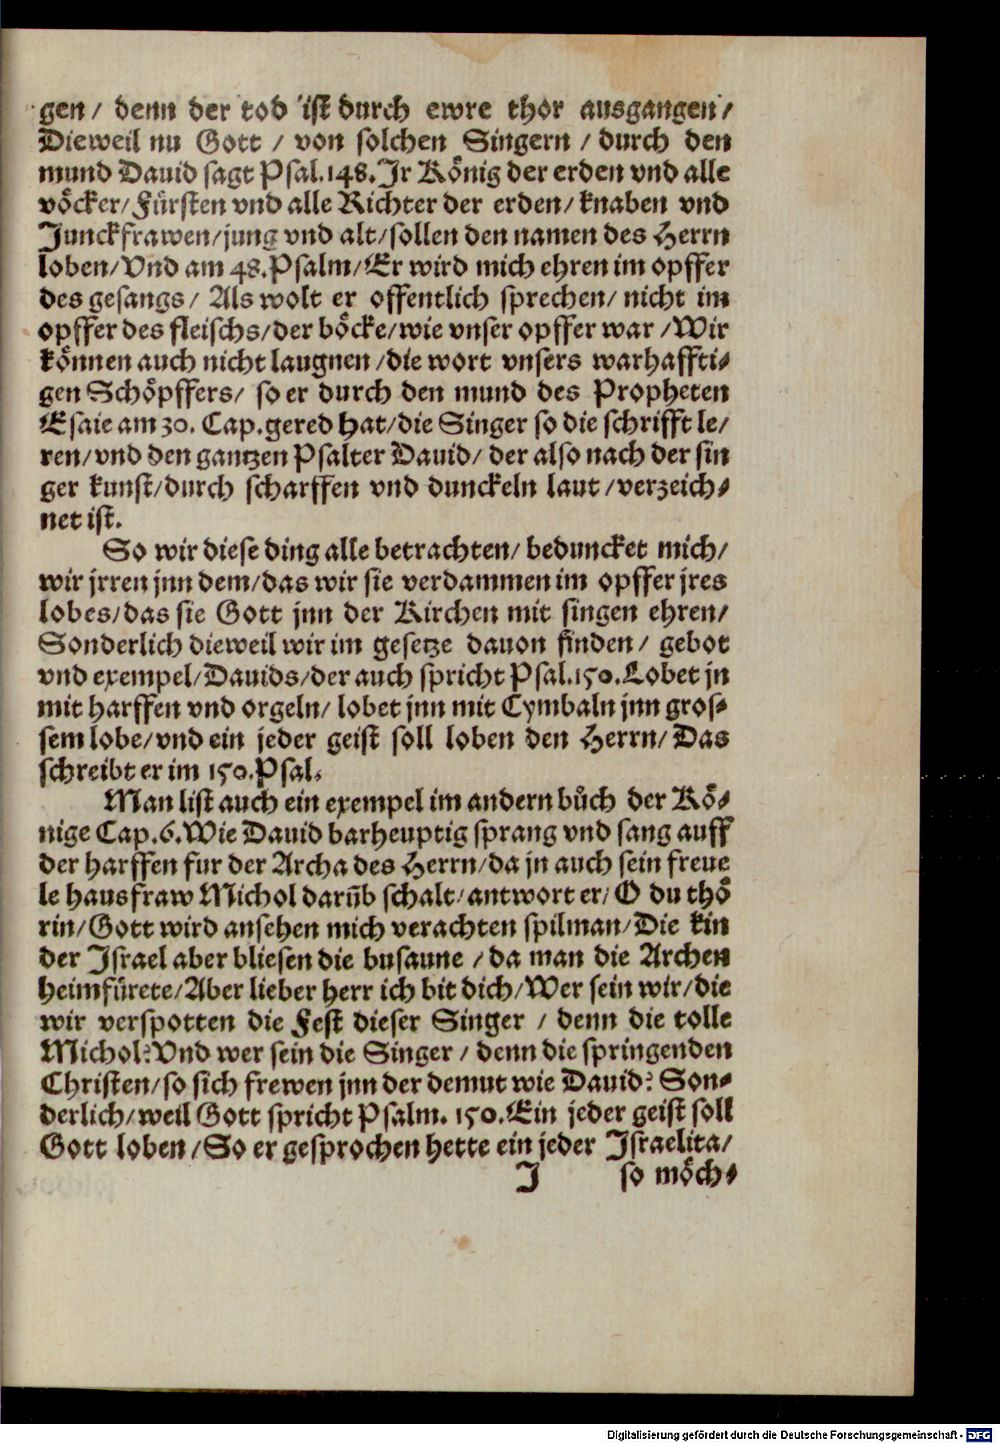 gen/ denn der tod ist durch ewre thor ausgangen/
Dieweil nu Gott / von solchen Singern / durch den
mund Dauid sagt Psal.148. Jr König der erden vnd alle
vöcker/ Fürsten vnd alle Richter der erden/ knaben vnd
Junckfrawen/ jung vnd alt/ sollen den namen des Herrn
loben/ Vnd am 48. Psalm/ Er wird mich ehren im opffer
des gesangs/ Als wolt er offentlich sprechen/ nicht im
opffer des fleischs/ der böcke/ wie vnser opffer war / Wir
können auch nicht laugnen /die wort vnsers warhaffti⸗
gen Schöpffers/ so er durch den mund des Propheten
Esaie am 30. Cap. gered hat/ die Singer so die schrifft le/
ren/ vnd den gantzen Psalter Dauid/ der also nach der sin
ger kunst/ durch scharffen vnd dunckeln laut /verzeich⸗
net ist.
So wir diese ding alle betrachten/ beduncket mich/
wir jrren jnn dem/ das wir sie verdammen im opffer jres
lobes/ das sie Gott jnn der Kirchen mit singen ehren/
Sonderlich dieweil wir im gesetze dauon finden/ gebot
vnd exempel/ Dauids/ der auch spricht Psal.150. Lobet jn
mit harffen vnd orgeln/ lobet jnn mit Cymbaln jnn gros⸗
sem lobe/ vnd ein jeder geist soll loben den Herrn/ Das
schreibt er im 150. Psal.
Man list auch ein exempel im andern bůch der Kö⸗
nige Cap.6. Wie Dauid barheuptig sprang vnd sang auff
der harffen fur der Archa des Herrn/ da jn auch sein freue
le hausfraw Michol darūb schalt/ antwort er/ O du thö
rin/ Gott wird ansehen mich verachten spilman/ Die kin
der Israel aber bliesen die busaune / da man die Archen
heimfürete/ Aber lieber herr ich bit dich/ Wer sein wir/ die
wir verspotten die Fest dieser Singer / denn die tolle
Michol? Vnd wer sein die Singer / denn die springenden
Christen/ so sich frewen jnn der demut wie Dauid? Son⸗
derlich/ weil Gott spricht Psalm. 150. Ein jeder geist soll
Gott loben / So er gesprochen hette ein jeder Israelita/
J so möch⸗
Digitalisierung gefördert durch die Deutsche Forschungsgemeinschaft - DFG